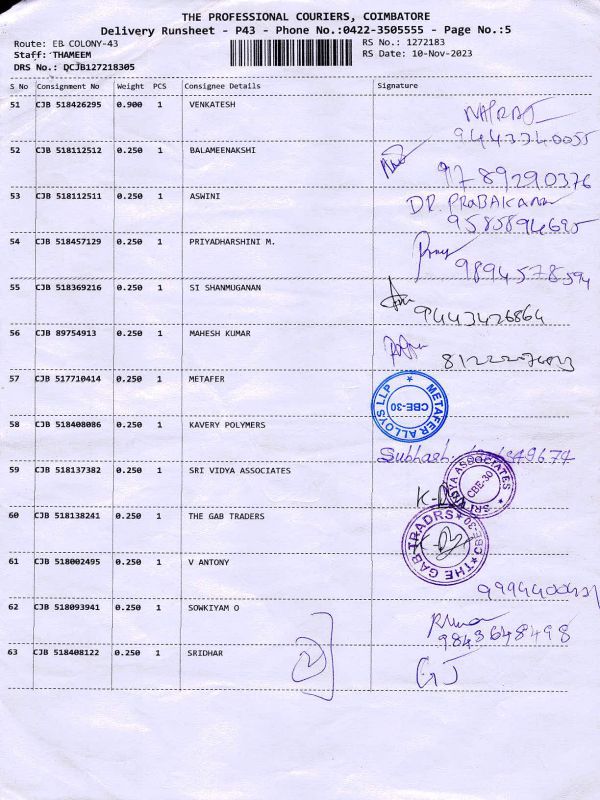 THE PROFESSIONAL COURIERS, COIMBATORE
Delivery Runsheet - P43 - Phone No.:0422-3505555 - Page No.:5
Route: EB COLONY-43 RS No.: 1272183
Staff: THAMEEM RS Date: 10-Nov-2023
DRS No.: DCJB127218305
S No Consignment No Weight PCS Consignee Details Signature
51 CJB 518426295 0.900 1 VENKATESH
9443340055
52 CJB 518112512 0.250 1 BALAMEENAKSHI
9789290376
53 CJB 518112511 0.250 1 ASWINI DR. PRABAKARAN
9585894695
54 CJB 518457129 0.250 1 PRIYADHARSHINI M.
9894578594
55 CJB 518369216 0.250 1 SI SHANMUGANAN
9443426864
56 CJB 89754913 0.250 1 MAHESH KUMAR
57 CJB 517710414 0.250 1 METAFER METAFER ALLOYS LLP CBE-30
58 CJB 518408086 0.250 1 KAVERY POLYMERS
Subhash
59 CJB 518137382 0.250 1 SRI VIDYA ASSOCIATES SRI VIDYA ASSOCIATES CBE-30
60 CJB 518138241 0.250 1 THE GAB TRADERS THE GAB TRADRS CBE-30
61 CJB 518002495 0.250 1 V ANTONY
62 CJB 518093941 0.250 1 SOWKIYAM O
9843648498
63 CJB 518408122 0.250 1 SRIDHAR GJ